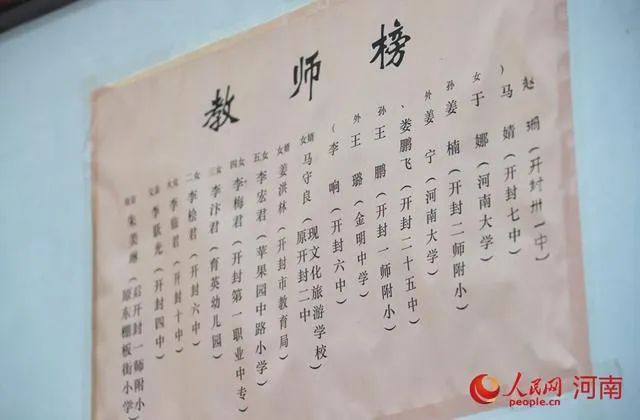 教师榜
朱美琳（后开封一师附小
原东棚板街小学
李跃光（开封四中）
大女 君（开封十中）
二女 李桧君（开封六中）
三女 李汴君（育英幼儿园）
四女 李梅君（开封第一职业中专）
五女 李宏君（苹果园中路小学）
女婿 姜洪林（开封市教育局）
女婿 马守良（现文化旅游学校
原开封二中
（李响（开封六中）
外 王璐（金明中学）
孙 王鹏（开封一师附小）
、娄鹏飞（开封二十五中）
外 姜宁（河南大学）
孙 姜楠（开封二师附小）
女 于娜（河南大学）
）马婧（开封七中）
赵珊（开封卅一中）
人民网 河南
people.cn